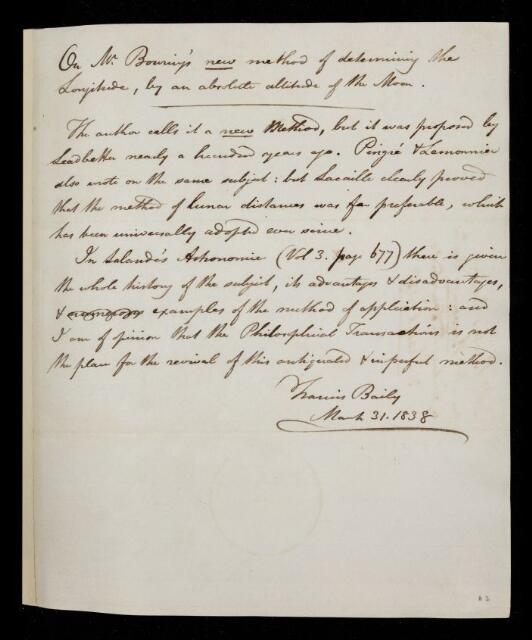 On Mr. Bowring's new method of determining the
Longitude, by an absolute altitude of the Moon.
The author calls it a new Method, but it was proposed by
Leadbetter nearly a hundred years ago. Pingré & Lemonnier
also wrote on the same subject: but Lacaille clearly proved
that the method of lunar distances was far preferable, which
has been universally adopted ever since.
In Lalande's Astronomie (Vol 3. page 677) there is given
the whole history of the subject, its advantages & disadvantages,
& examples of the method of application: and
I am of opinion that the Philosophical Transactions is not
the place for the revival of this antiquated & imperfect method.
Francis Baily
March 31. 1838